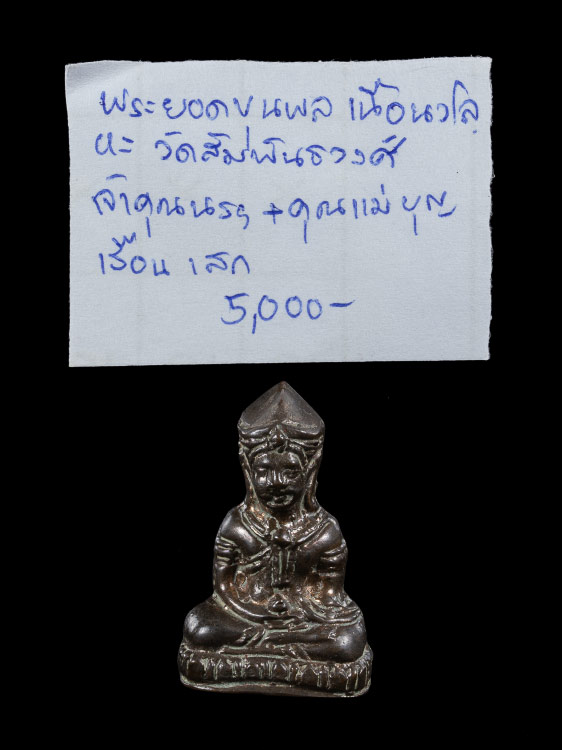 พระยอดขุนพล เนื้อนวโล
หะ วัดสัมพันธวงศ์
เจ้าคุณนรฯ +คุณแม่บุญ
เรือน เสก
5,000-